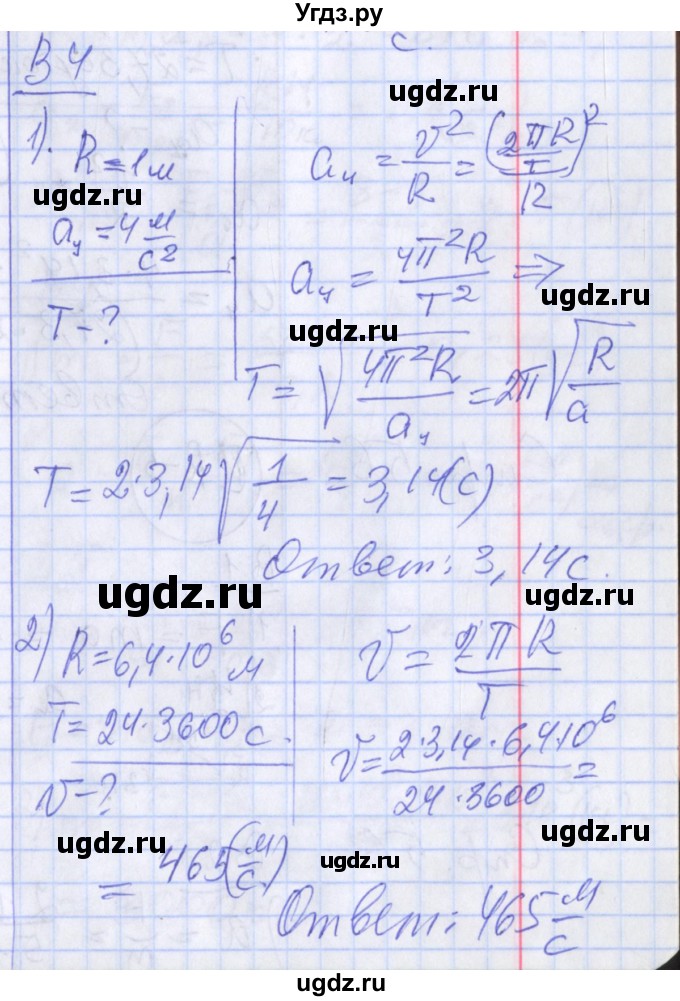 Угдз.ру
с.
В 4
1).
R = 1 м
ugdz.ru
aц = 4 м/с²
T - ?
ugdz.ru
aц = v²/R = (2πR/T)²/R
aц = 4π²R/T² =>
ugdz.ru
ugdz.ru
T = √(4π²R/aц) = 2π√(R/a)
T = 2·3,14√(1/4) = 3,14(с)
Ответ: 3,14с.
ugdz.ru
ugdz.ru
2) R = 6,4·10⁶ м
T = 24·3600 с.
v - ?
v = 2πR/T
v = 2·3,14·6,4·10⁶/24·3600 =
ugdz.ru
ugdz.ru
ugdz.ru
= 465(м/с)
Ответ: 465 м/с
ugdz.ru